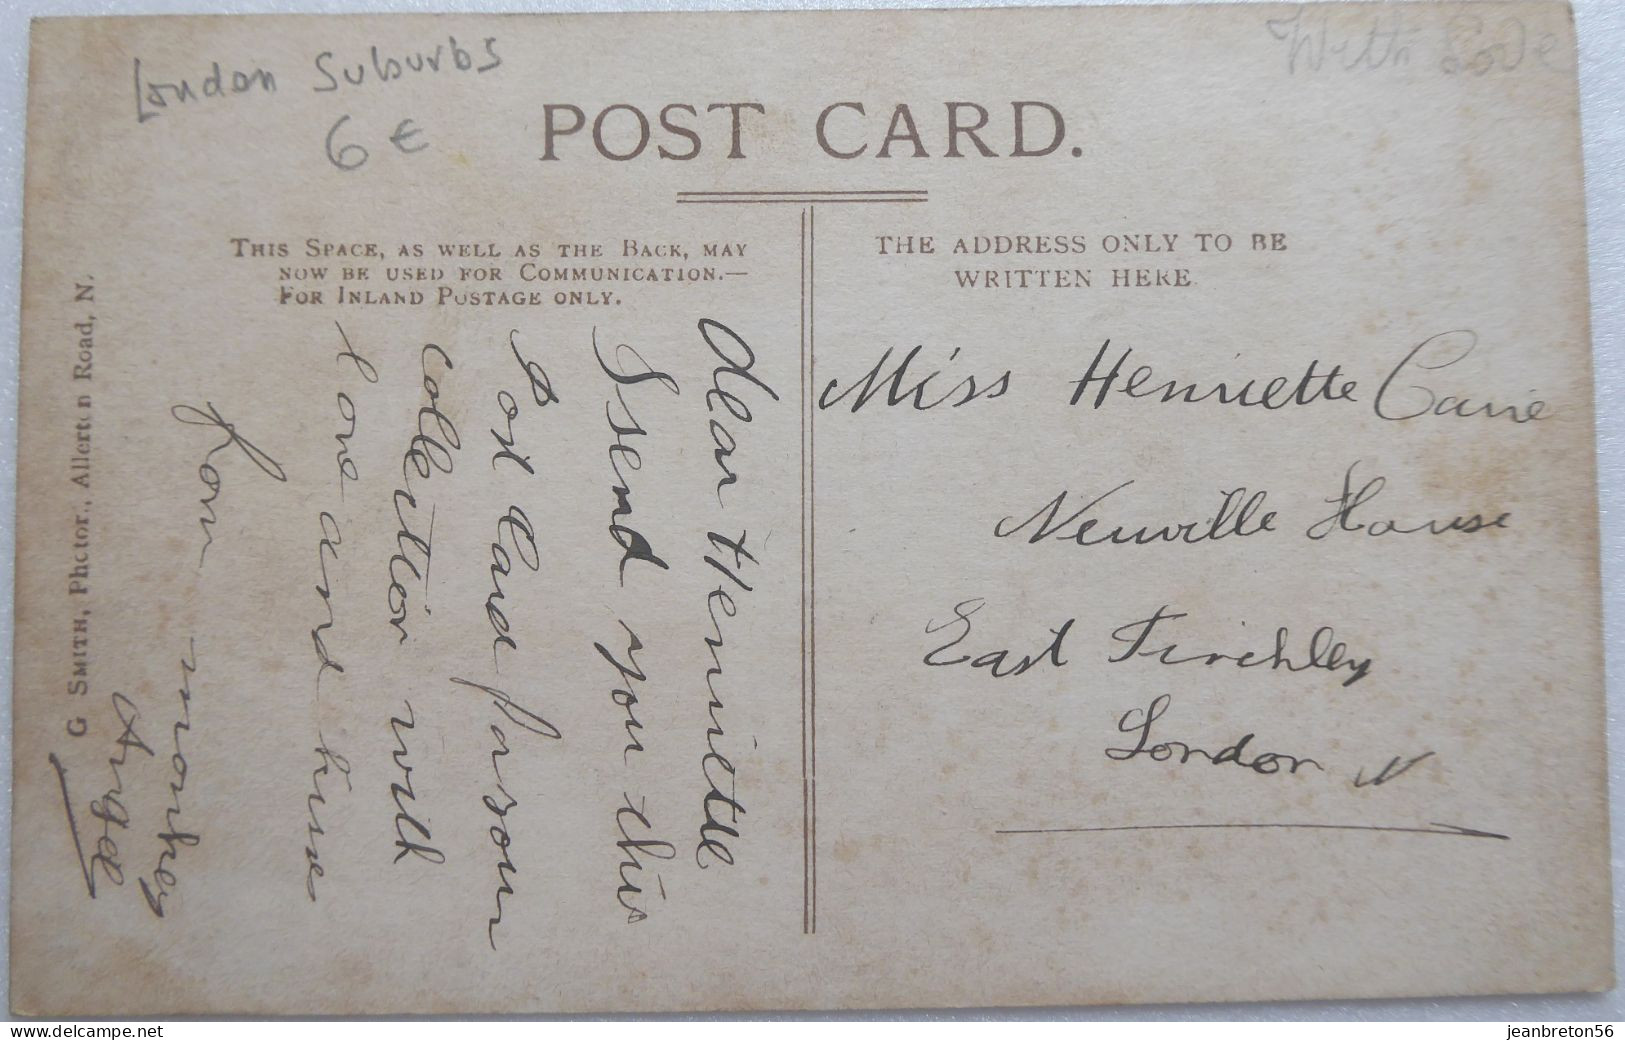 London Suburbs
6 €
With Love
POST CARD.
THIS SPACE, AS WELL AS THE BACK, MAY
NOW BE USED FOR COMMUNICATION.—
FOR INLAND POSTAGE ONLY.
THE ADDRESS ONLY TO BE
WRITTEN HERE.
Dear Henriette
I send you this
Post Card for your
collection with
love and kisses
from monkey
Angel
G SMITH, Photor., Allerton Road, N.
Miss Henriette
Neuville House
East Finchley
London N
jeanbreton56
delcampe.net